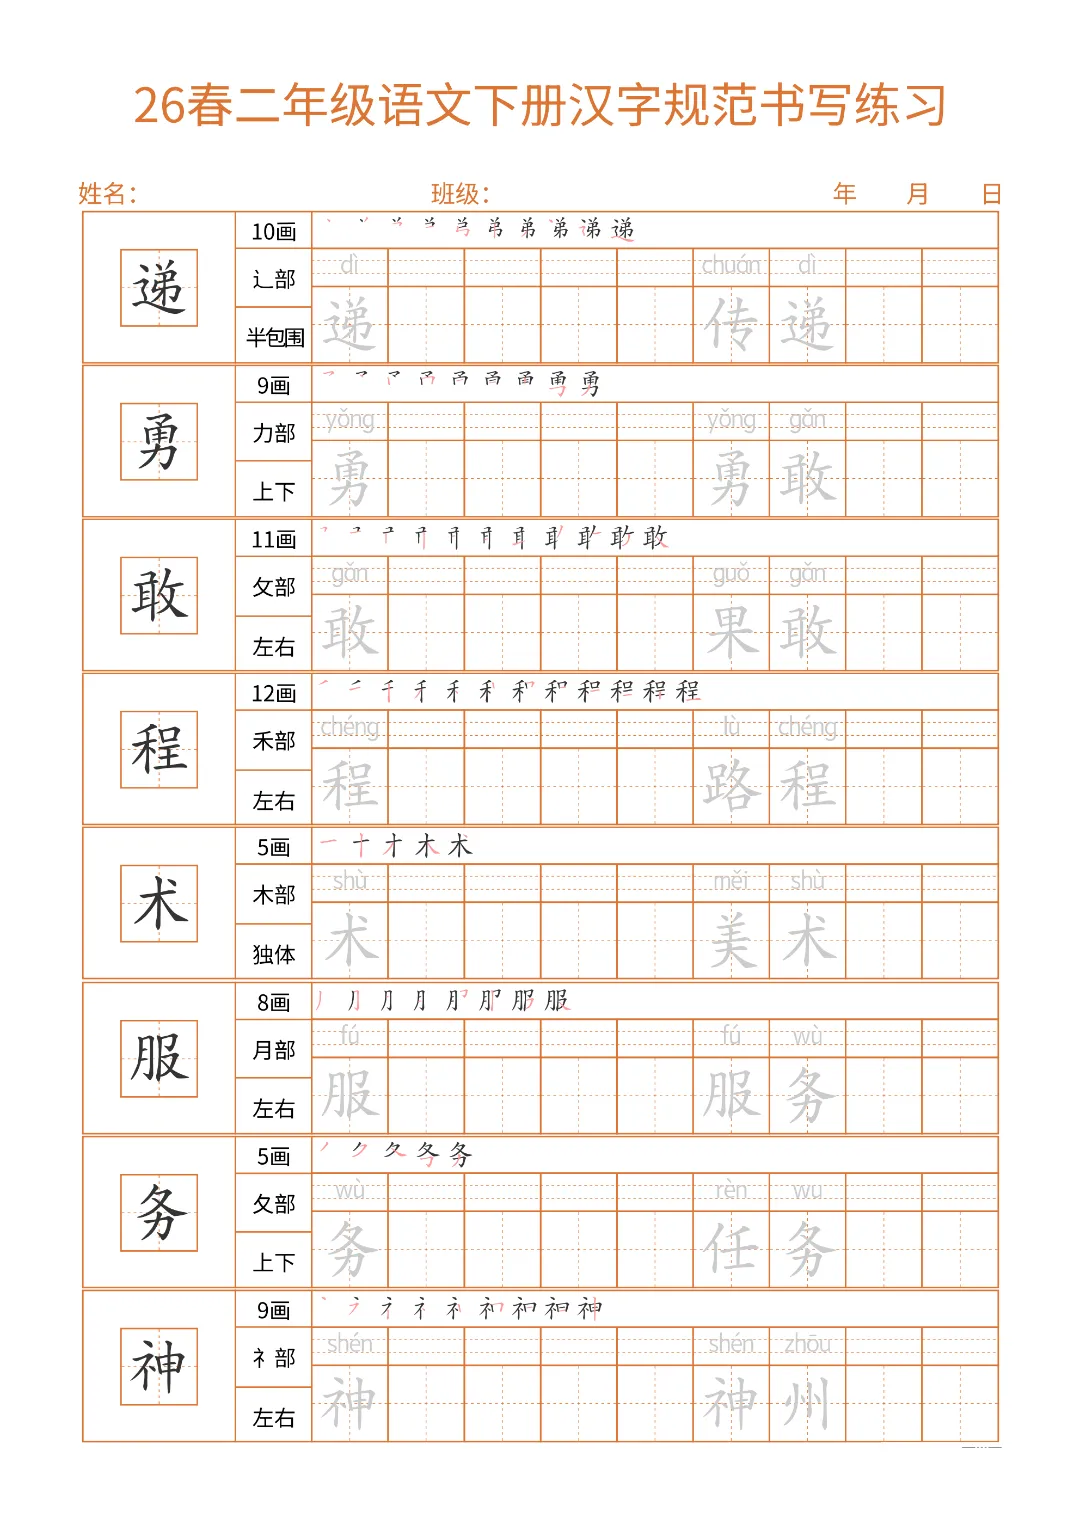 26春二年级语文下册汉字规范书写练习
姓名： 班级： 年 月 日
递 10画
辶部 dì chuán dì
半包围 递 传 递
勇 9画
力部 yǒng yǒng gǎn
上下 勇 勇 敢
敢 11画
攵部 gǎn guǒ gǎn
左右 敢 果 敢
程 12画
禾部 chéng lù chéng
左右 程 路 程
术 5画 一 十 才 木 术
木部 shù měi shù
独体 术 美 术
服 8画
月部 fú fú wù
左右 服 服 务
务 5画
夂部 wù rèn wu
上下 务 任 务
神 9画
礻部 shén shén zhōu
左右 神 神 州